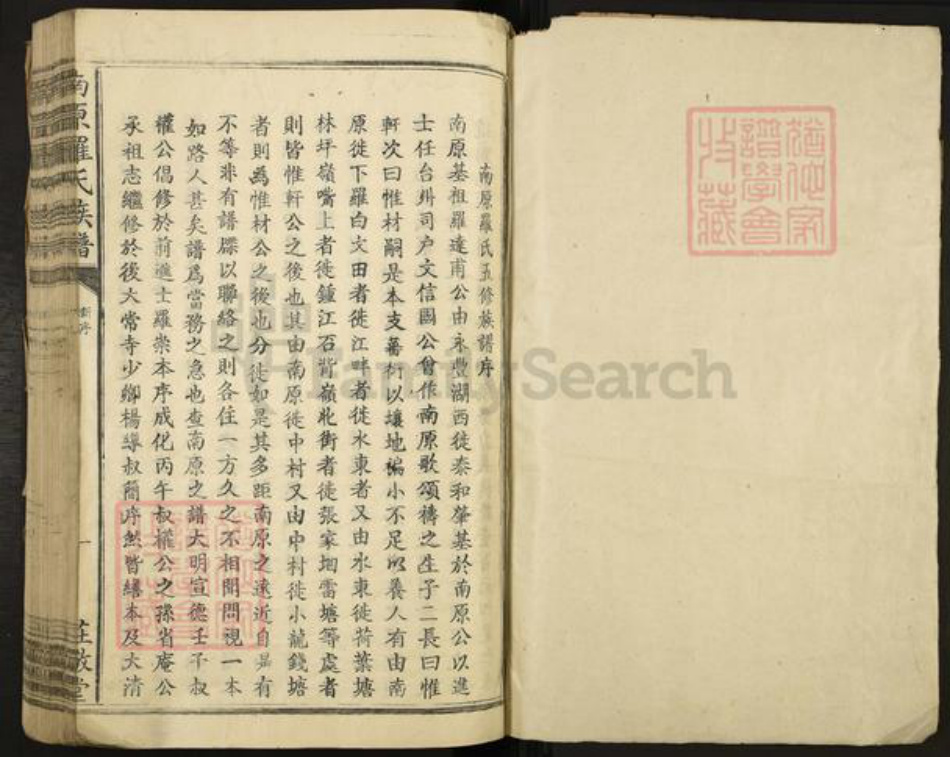 南原羅氏五修族譜序
南原基祖羅達甫公由永豐湖西徙泰和肇基於南原公以進
士任台州司户文信國公曾作南原歌頌禱之生子二長曰惟
軒次曰惟材嗣是本支蕃衍以壤地褊小不足以養人有由南
原徙下羅白文田者徙江畔者徙水東者又由水東徙荷葉塘
林坪嶺嘴上者徙鍾江石背嶺北街者徒張家㘭雷塘等處者
則皆惟軒公之後也其由南原徙中村又由中村徙小龍錢塘
者則為惟材公之後也分徙如是其多距南原之遠近自是有
不等非有譜牒以聯絡之則各住一方久之不相聞問視一本
如路人甚矣譜爲當務之急也查南原之譜大明宣德壬子叔
權公倡修於前進士羅崇本序成化丙午叔權公之孫省庵公
承祖志繼修於後大常寺少卿楊導叔簡序然皆繕本及大清
南原羅氏族譜
新序
一
莊敬堂
猶他家
譜學會
收藏
FamilySearch